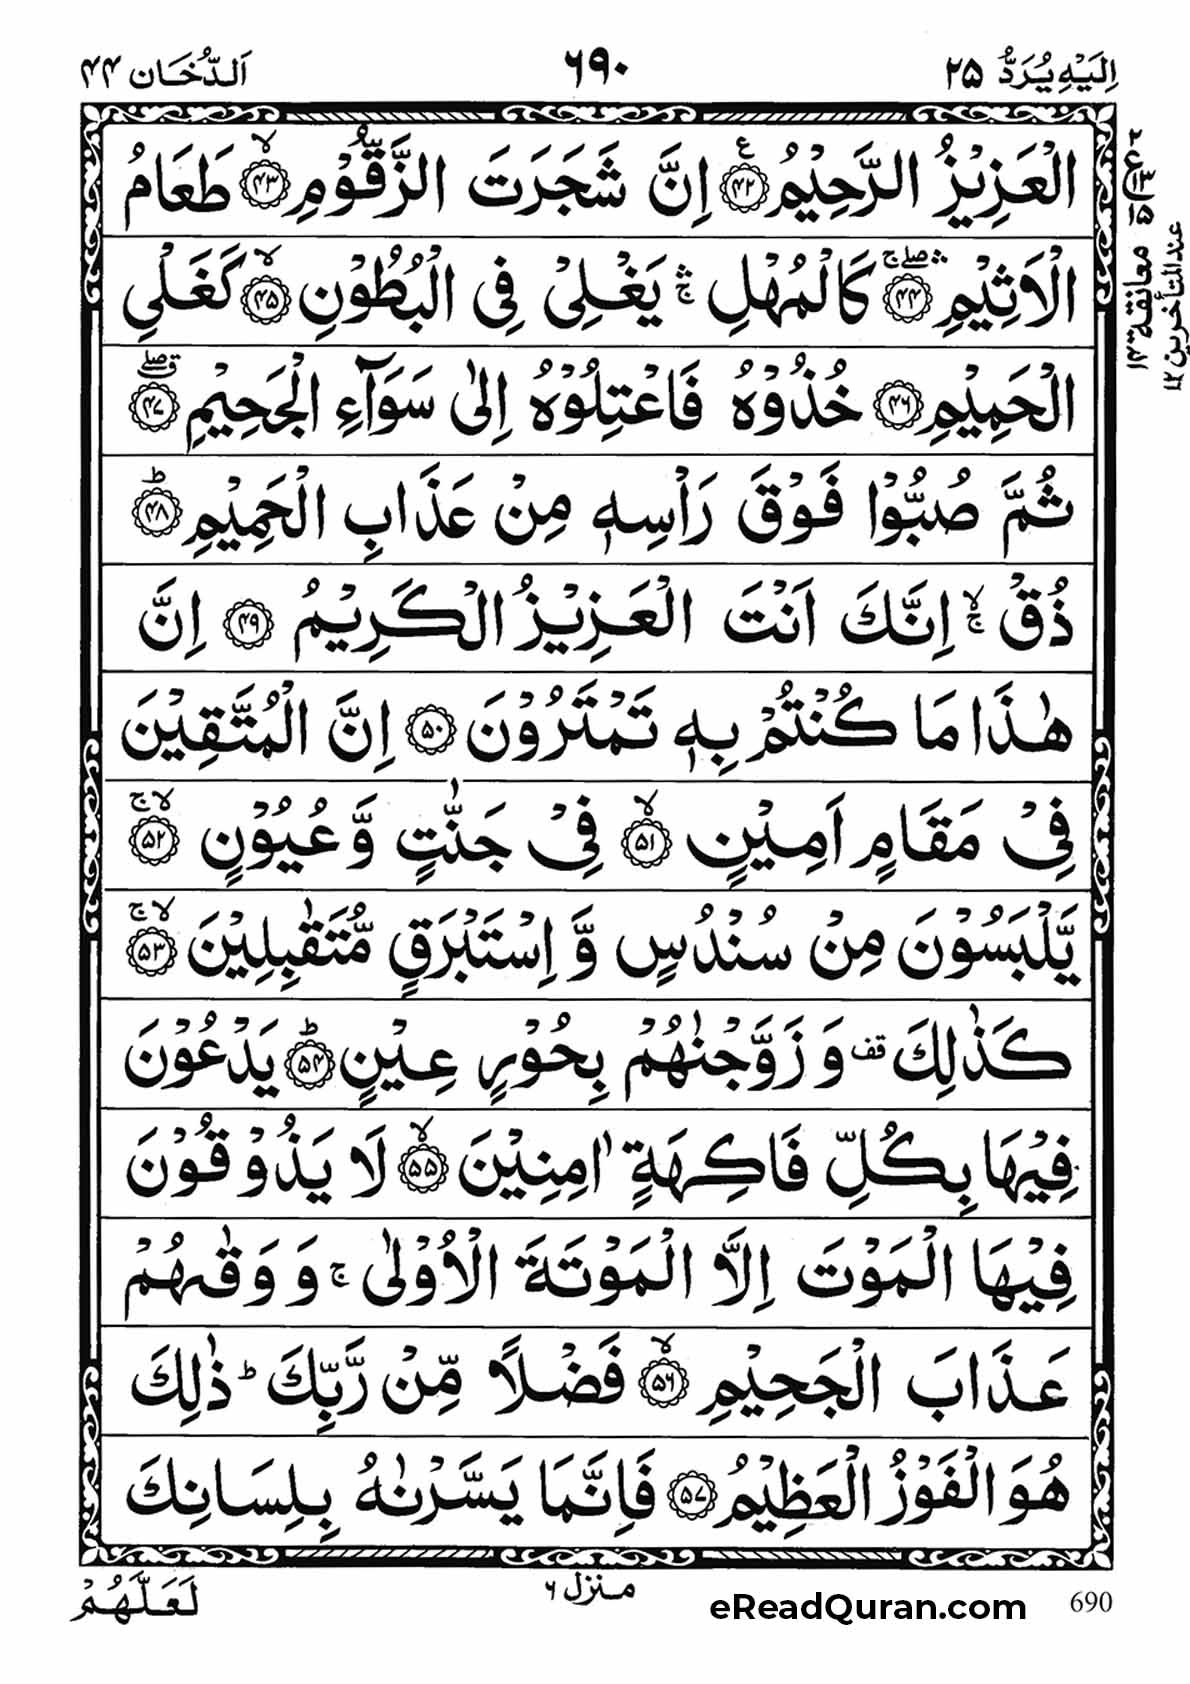 اِلَیْهِ یُرَدُّ ۲۵
٦٩٠
اَلدُّخَان ۴۴
الْعَزِیْزُ الرَّحِیْمُ ﴿۴۲﴾ع اِنَّ شَجَرَتَ الزَّقُّوْمِ ﴿۴۳﴾ۙ طَعَامُ
الْاَثِیْمِ ﴿۴۴﴾ۛۖۚ كَالْمُهْلِ ۛۚ یَغْلِیْ فِی الْبُطُوْنِ ﴿۴۵﴾ۙ كَغَلْیِ
الْحَمِیْمِ ﴿۴۶﴾ خُذُوْهُ فَاعْتِلُوْهُ اِلٰی سَوَآءِ الْجَحِیْمِ ﴿۴۷﴾ۗۖ
ثُمَّ صُبُّوْا فَوْقَ رَاْسِهٖ مِنْ عَذَابِ الْحَمِیْمِ ﴿۴۸﴾ؕ
ذُقْ ۙۚ اِنَّكَ اَنْتَ الْعَزِیْزُ الْكَرِیْمُ ﴿۴۹﴾ اِنَّ
هٰذَا مَا كُنْتُمْ بِهٖ تَمْتَرُوْنَ ﴿۵۰﴾ اِنَّ الْمُتَّقِیْنَ
فِیْ مَقَامٍ اَمِیْنٍ ﴿۵۱﴾ۙ فِیْ جَنّٰتٍ وَّ عُیُوْنٍ ﴿۵۲﴾ۙۚ
یَّلْبَسُوْنَ مِنْ سُنْدُسٍ وَّ اِسْتَبْرَقٍ مُّتَقٰبِلِیْنَ ﴿۵۳﴾ۙۚ
كَذٰلِكَ قف وَ زَوَّجْنٰهُمْ بِحُوْرٍ عِیْنٍ ﴿۵۴﴾ؕ یَدْعُوْنَ
فِیْهَا بِكُلِّ فَاكِهَةٍ اٰمِنِیْنَ ﴿۵۵﴾ۙ لَا یَذُوْقُوْنَ
فِیْهَا الْمَوْتَ اِلَّا الْمَوْتَةَ الْاُوْلٰی ۚ وَ وَقٰىهُمْ
عَذَابَ الْجَحِیْمِ ﴿۵۶﴾ۙ فَضْلًا مِّنْ رَّبِّكَ ؕ ذٰلِكَ
هُوَ الْفَوْزُ الْعَظِیْمُ ﴿۵۷﴾ فَاِنَّمَا یَسَّرْنٰهُ بِلِسَانِكَ
۲
ع ۱۳
۱۵
معانقة ۱۴
عند المتأخرین ۱۲
لَعَلَّهُمْ
منزل ۶
eReadQuran.com
690